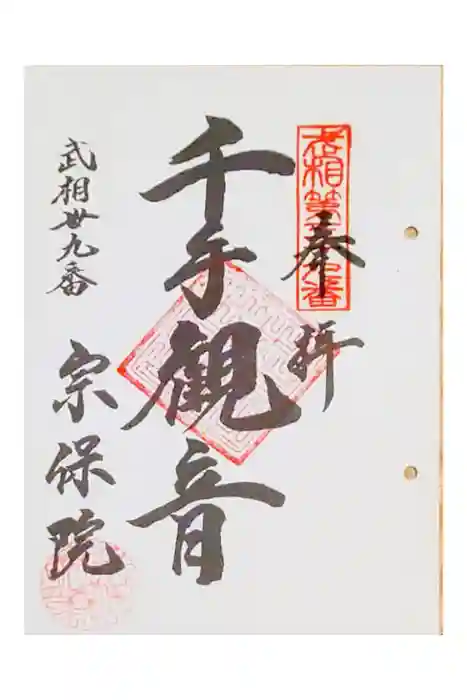 武相第廿九番
奉拝
千手観音
武相廿九番
宗保院